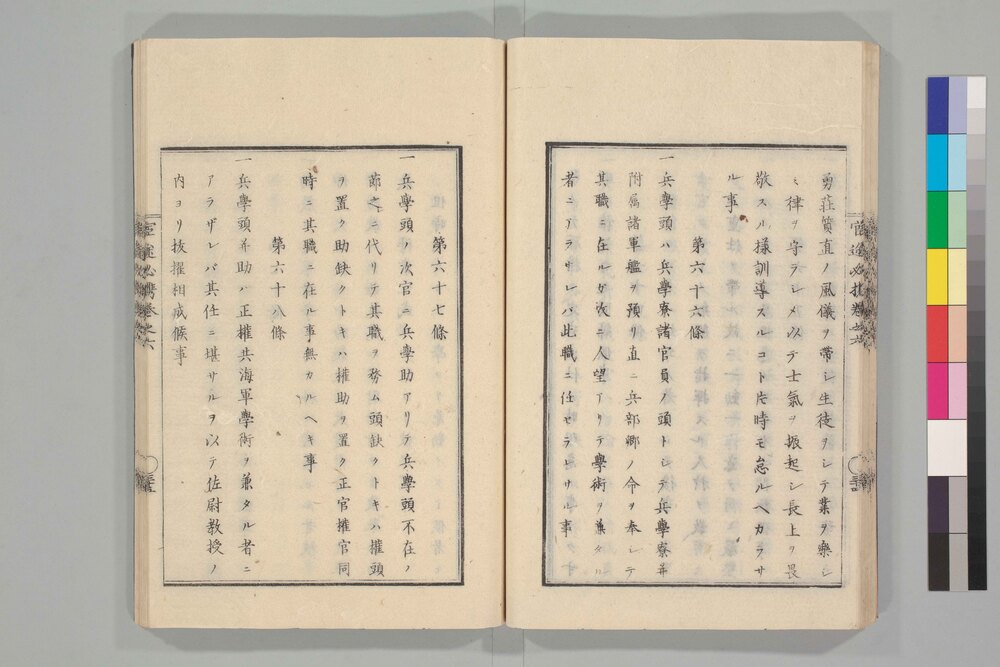 勇荘質直ノ風儀ヲ帯シ生徒ヲシテ業ヲ樂シ
ミ律ヲ守ラシメ以テ士氣ヲ振起シ長上ヲ畏
敬スル樣訓導スルコト片時モ怠ルヘカラサ
ル事
第六十六條
一兵學頭ハ兵學寮諸官員ノ頭トシテ兵學寮並
附属諸軍艦ヲ預リ直ニ兵部卿ノ令ヲ奉シテ
其職ニ在ルガ次ニ人望アリテ學術ヲ兼タル
者ニアラサレハ此職ニ任セラレサル事
第六十七條
一兵學頭ノ次官ニ兵學助アリテ兵學頭不在ノ
節之ニ代リテ其職ヲ務ム頭缺クトキハ權頭
ヲ置ク助缺クトキハ權助ヲ置ク正官權官同
時ニ其職ニ在ル事無カルヘキ事
第六十八條
一兵學頭並助ハ正權共海軍學術ヲ兼タル者ニ
アラザレバ其任ニ堪サルヲ以テ佐尉教授ノ
内ヨリ抜擢相成候事